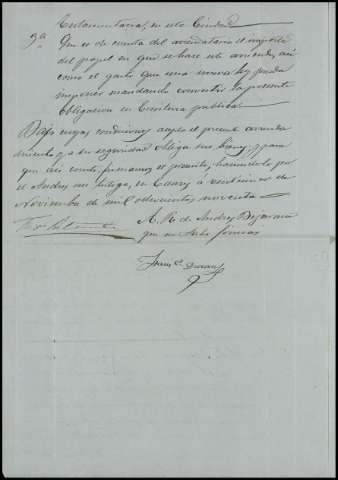 Testamentaria, en esta Ciudad
9ª Que es de cuenta del arrendatario el importe
del papel en que se hace este arriendo, asi
como el gasto que una nueva ley pueda
imponer mandando convertir la presente
obligacion en Escritura publica.
Bajo cuyas condiciones acepta el presente arrenda
miento y a su seguridad obliga sus bienes, y para
que asi conste firmamos el presente, haciendolo por
el Andres un testigo, en Coria á veintiuno de
Noviembre de mil ochocientos noventa
A. R. de Andres Bejarano
que no sabe firmar
Franco Duran